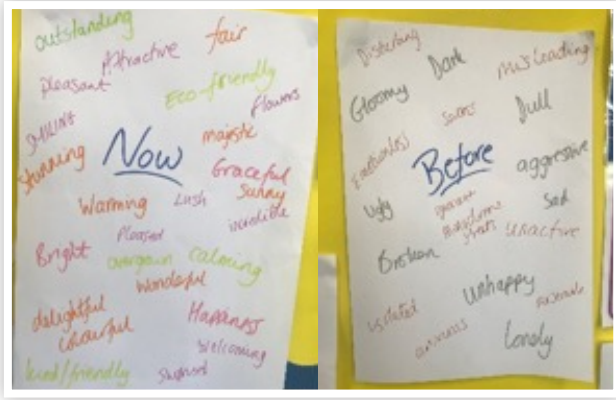 outstanding
Attractive
fair
pleasant
Eco-friendly
flowers
SMILING
majestic
Stunning
Now
Graceful
Sunny
Warming
Lush
incredible
Pleased
Bright
overgrown calming
wonderful
delightful
colourful
Happiness
Welcoming
kind/friendly
Disturbing
Dark
misleading
Gloomy
Dull
Emotionless
Before
aggressive
Ugly
Sad
unactive
Broken
unhappy
isolated
Lonely